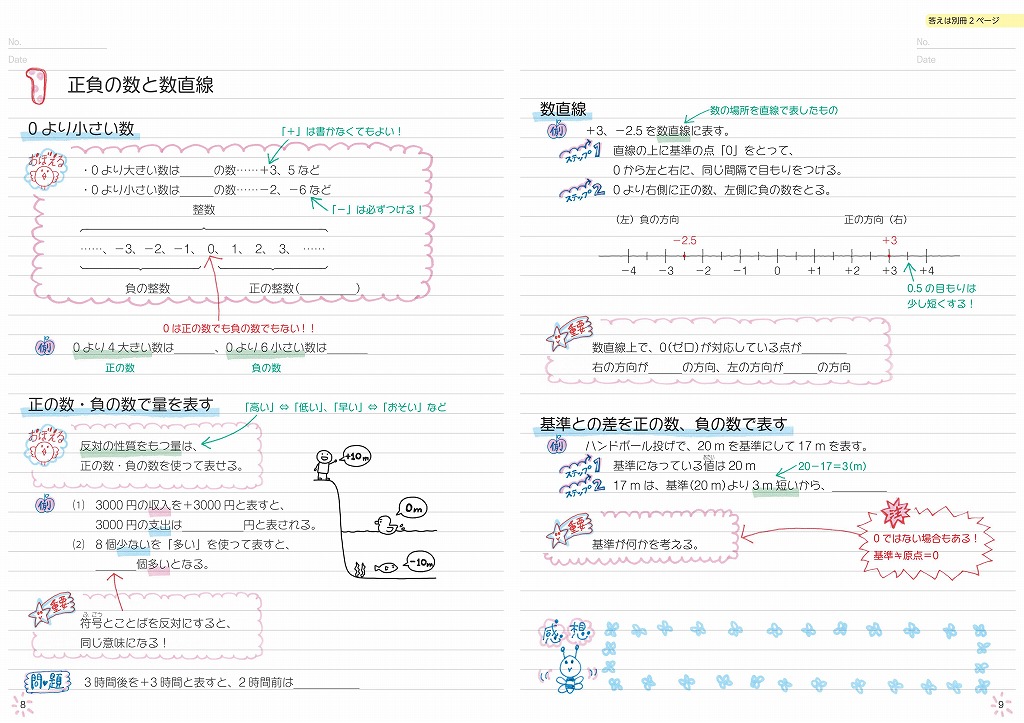 No.
Date
1 正負の数と数直線
0より小さい数
「+」は書かなくてもよい！
おぼえる
・0より大きい数は______の数……+3、5など
・0より小さい数は______の数……−2、−6など
「−」は必ずつける！
整数
……、−3、−2、−1、0、1、2、3、……
負の整数 正の整数(__________)
0は正の数でも負の数でもない！！
例 0より4大きい数は_______、0より6小さい数は_______
正の数 負の数
正の数・負の数で量を表す
「高い」⇔「低い」、「早い」⇔「おそい」など
おぼえる
反対の性質をもつ量は、
正の数・負の数を使って表せる。
+10m
0m
−10m
例 (1) 3000円の収入を+3000円と表すと、
3000円の支出は__________円と表される。
(2) 8個少ないを「多い」を使って表すと、
_______個多いとなる。
重要
ふごう
符号とことばを反対にすると、
同じ意味になる！
問題 3時間後を+3時間と表すと、2時間前は___________
8
答えは別冊2ページ
No.
Date
数直線
数の場所を直線で表したもの
例 +3、−2.5を数直線に表す。
ステップ1 直線の上に基準の点「0」をとって、
0から左と右に、同じ間隔で目もりをつける。
ステップ2 0より右側に正の数、左側に負の数をとる。
(左)負の方向 正の方向(右)
−2.5 +3
−4 −3 −2 −1 0 +1 +2 +3 +4
0.5の目もりは
少し短くする！
重要
数直線上で、0(ゼロ)が対応している点が________
右の方向が______の方向、左の方向が______の方向
基準との差を正の数、負の数で表す
例 ハンドボール投げで、20mを基準にして17mを表す。
あたい
ステップ1 基準になっている値は20m
20−17=3(m)
ステップ2 17mは、基準(20m)より3m短いから、_________
重要
基準が何かを考える。
注
0ではない場合もある！
基準≠原点=0
感想
9